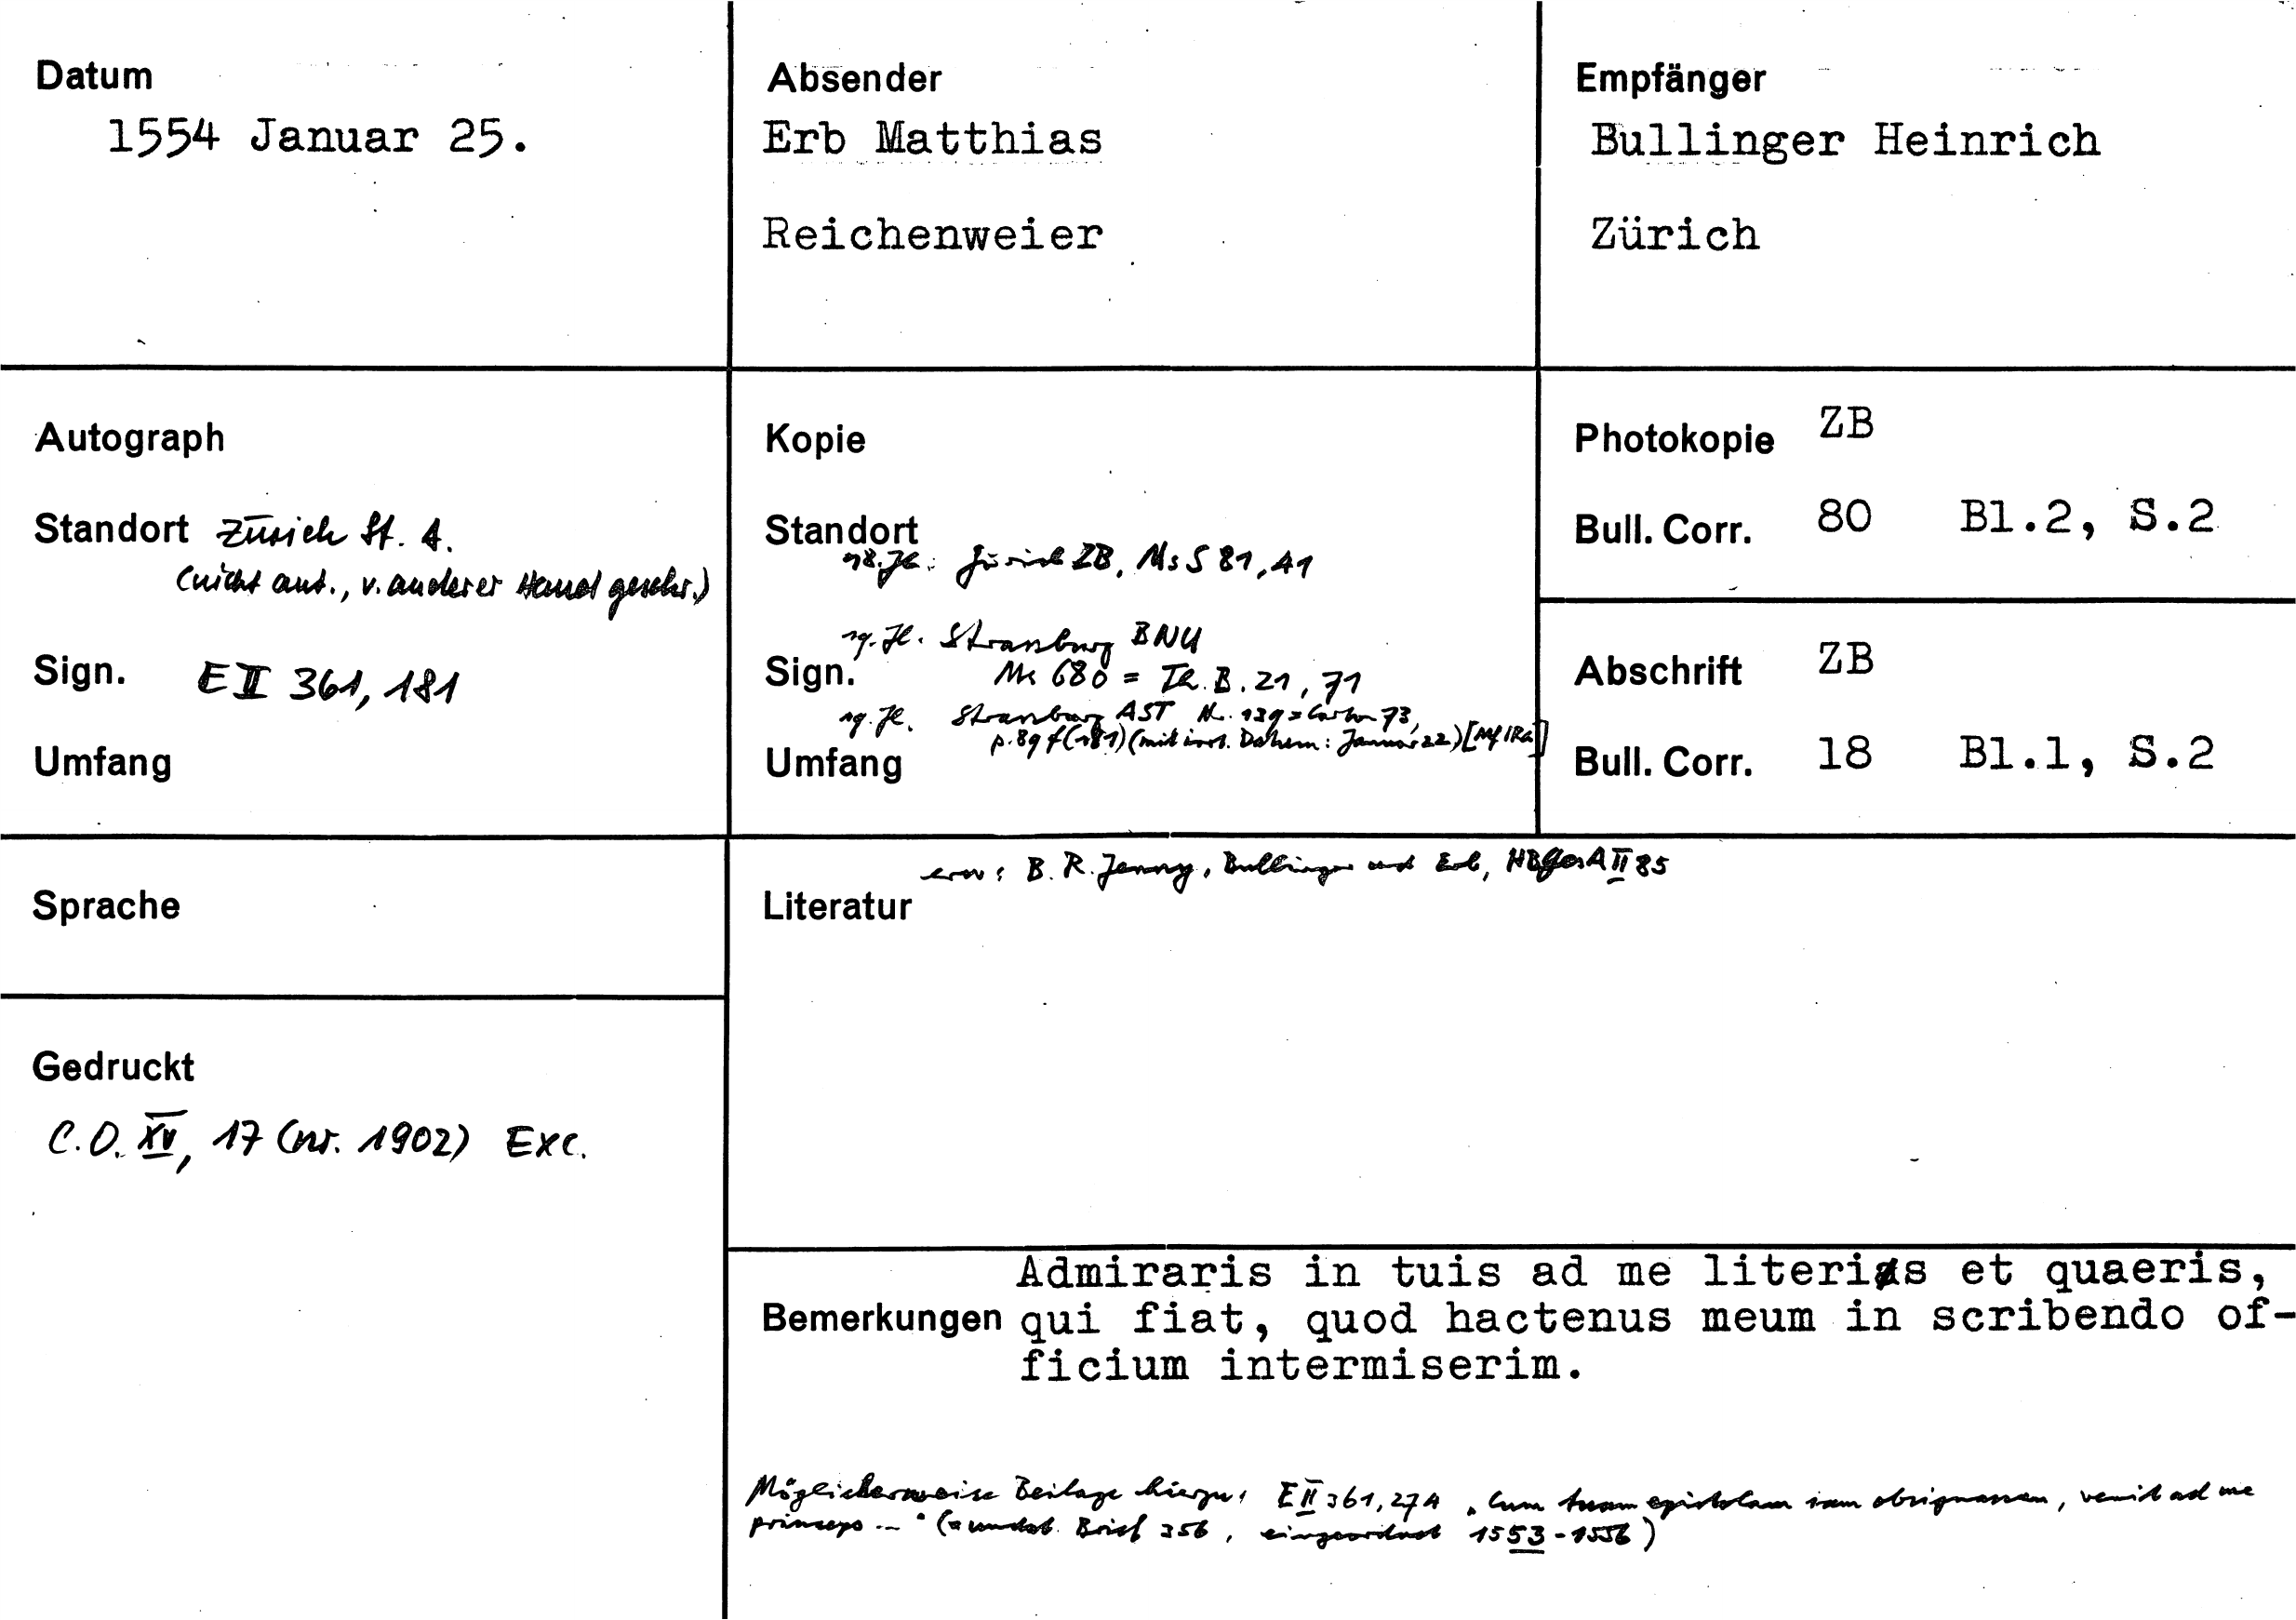 Datum
1554 Januar 25.
Absender
Erb Matthias
Reichenweier
Empfänger
Bullinger Heinrich
Zürich
Autograph
Standort Zürich St. A.
(nicht aut., v. anderer Hand geschr.)
Sign. E II 361, 181
Umfang
Kopie
Standort
18. Jh.: Zürich ZB, Ms S 81, 41
19. Jh. Strassburg BNU
Sign. Ms 680 = Th. B. 21, 71
19. Jh. Strassburg AST Nr. 139 = Carton 73,
p. 89 f (181) (mit irrt. Datum: Januar 22)
Umfang
Photokopie ZB
Bull. Corr. 80 Bl.2, S.2
Abschrift ZB
Bull. Corr. 18 Bl.1, S.2
Sprache
Gedruckt
C.O. XV, 17 (nr. 1902) Exc.
erw: B. R. Jenny, Bullinger und Erb, HBGesA II 85
Literatur
Admiraris in tuis ad me literis et quaeris,
Bemerkungen qui fiat, quod hactenus meum in scribendo of-
ficium intermiserim.
Möglicherweise Beilage hierzu: E II 361, 274 „Cum tuam epistolam iam obsignassem, venit ad me
princeps ..." (= undat. Brief 356, eingeordnet 1553-1556)